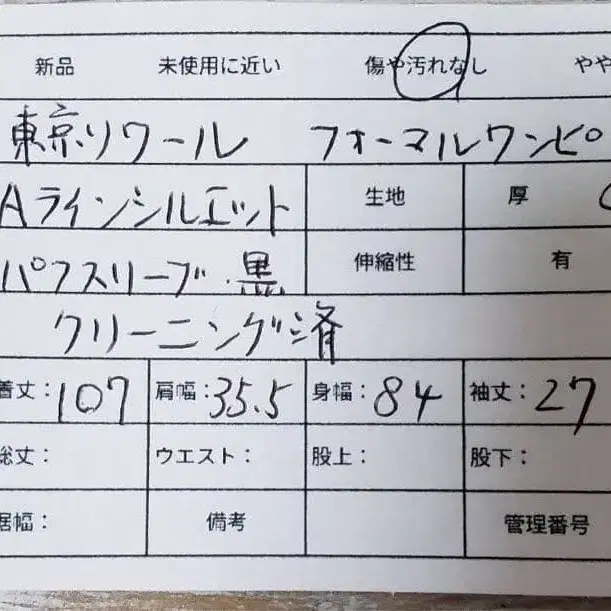 新品 未使用に近い 傷や汚れなし やや
東京ソワール フォーマルワンピ
Aラインシルエット 生地 厚
パフスリーブ 黒 伸縮性 有
クリーニング済
着丈:107 肩幅:35.5 身幅:84 袖丈:27
総丈: ウエスト: 股上: 股下:
裾幅: 備考 管理番号